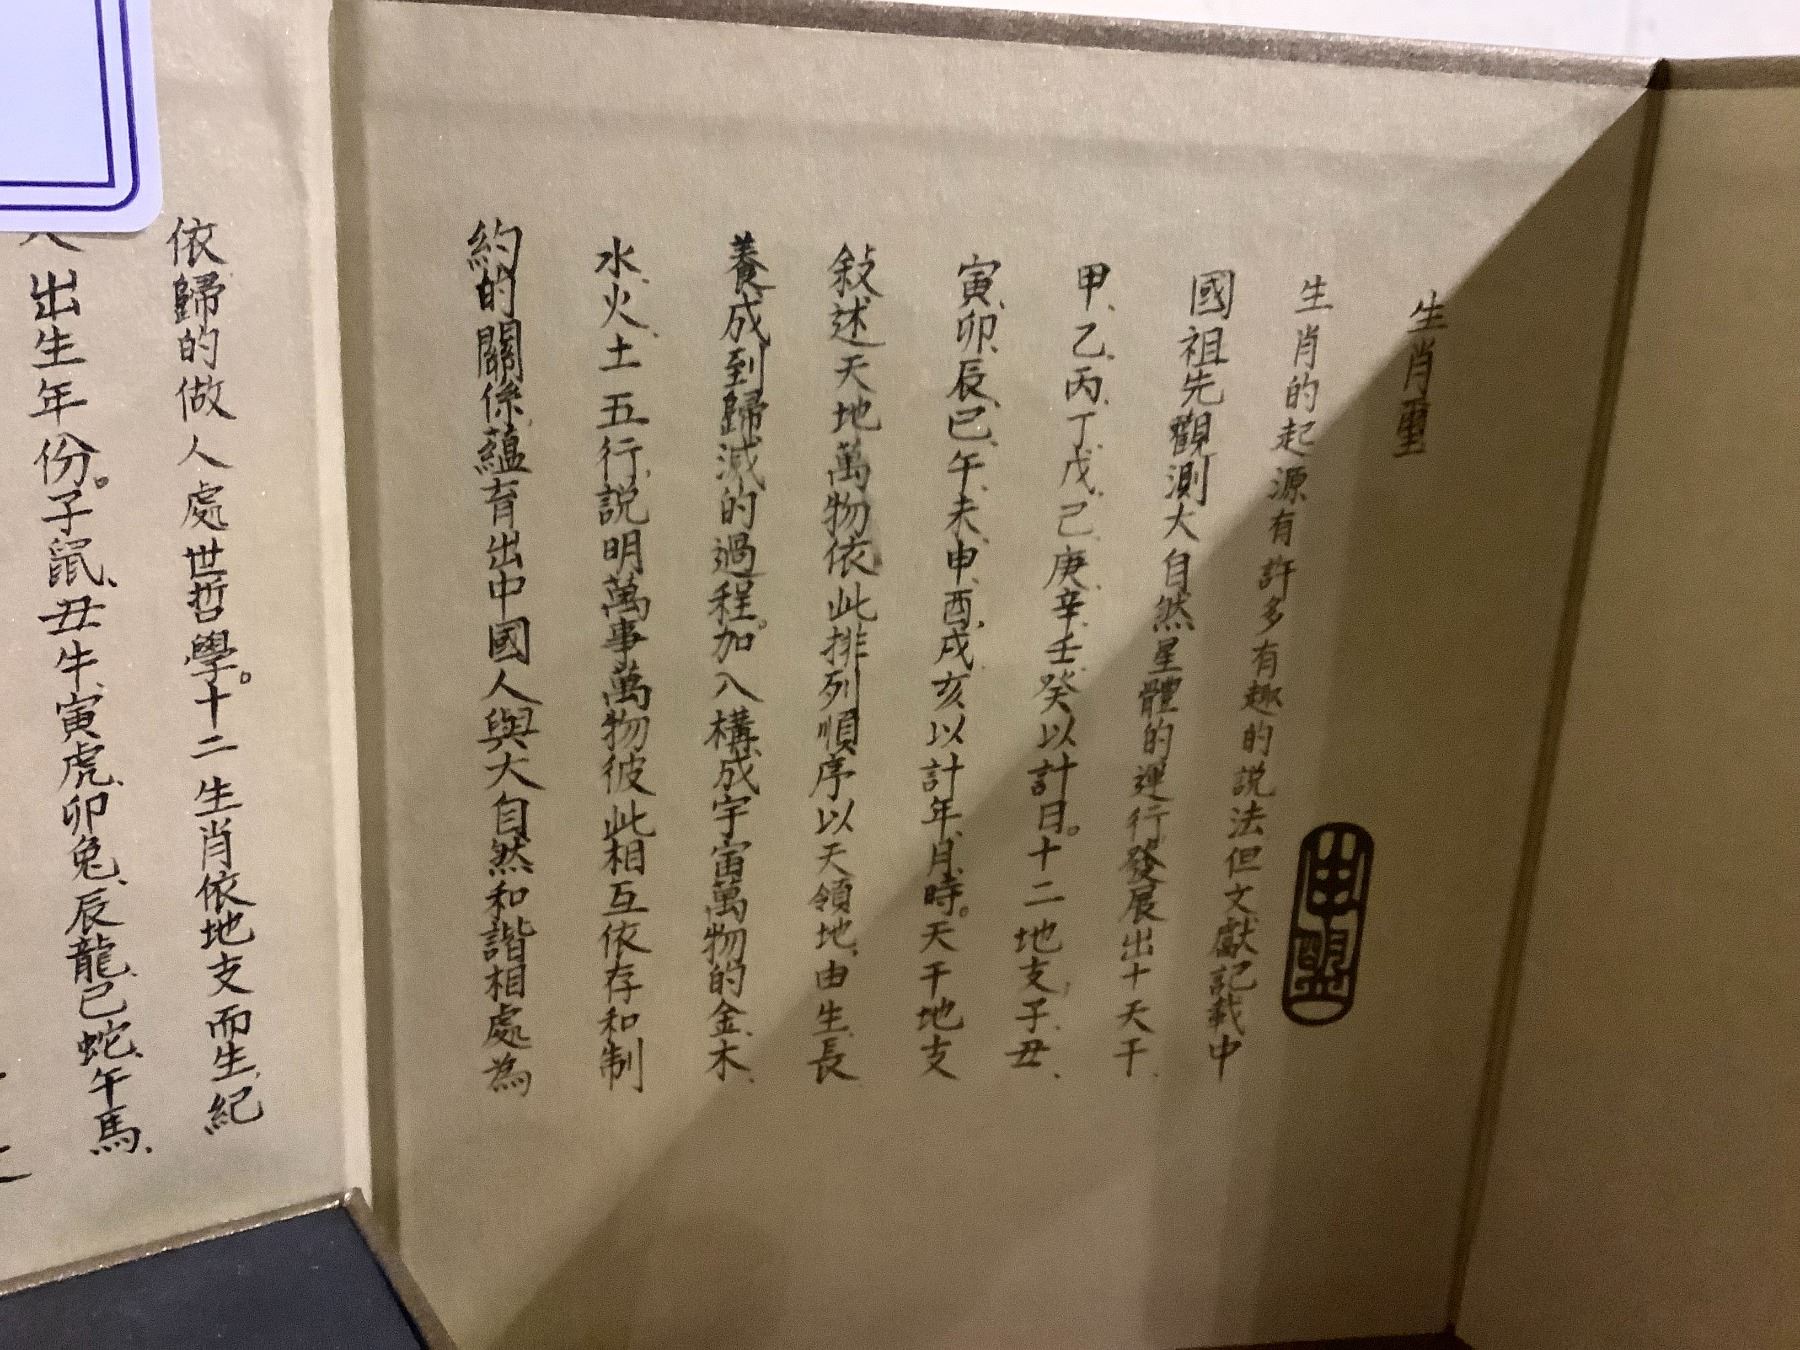 生肖璽
生肖的起源有許多有趣的説法但文獻記載中
國祖先觀測大自然星體的運行,發展出十天干、
甲、乙、丙、丁、戊、己、庚、辛、壬、癸以計日。十二地支,子、丑、
寅、卯、辰、巳、午、未、申、酉、戌、亥以計年、月、時。天干地支
敍述天地萬物依此排列順序以天領地,由生、長
養、成到歸滅的過程。加入構成宇宙萬物的金、木、
水、火、土五行,説明萬事萬物彼此相互依存和制
約的關係,蘊育出中國人與大自然和諧相處為
依歸的做人處世哲學。十二生肖依地支而生,紀
出生年份。子鼠、丑牛、寅虎、卯兔、辰龍、巳蛇、午馬、